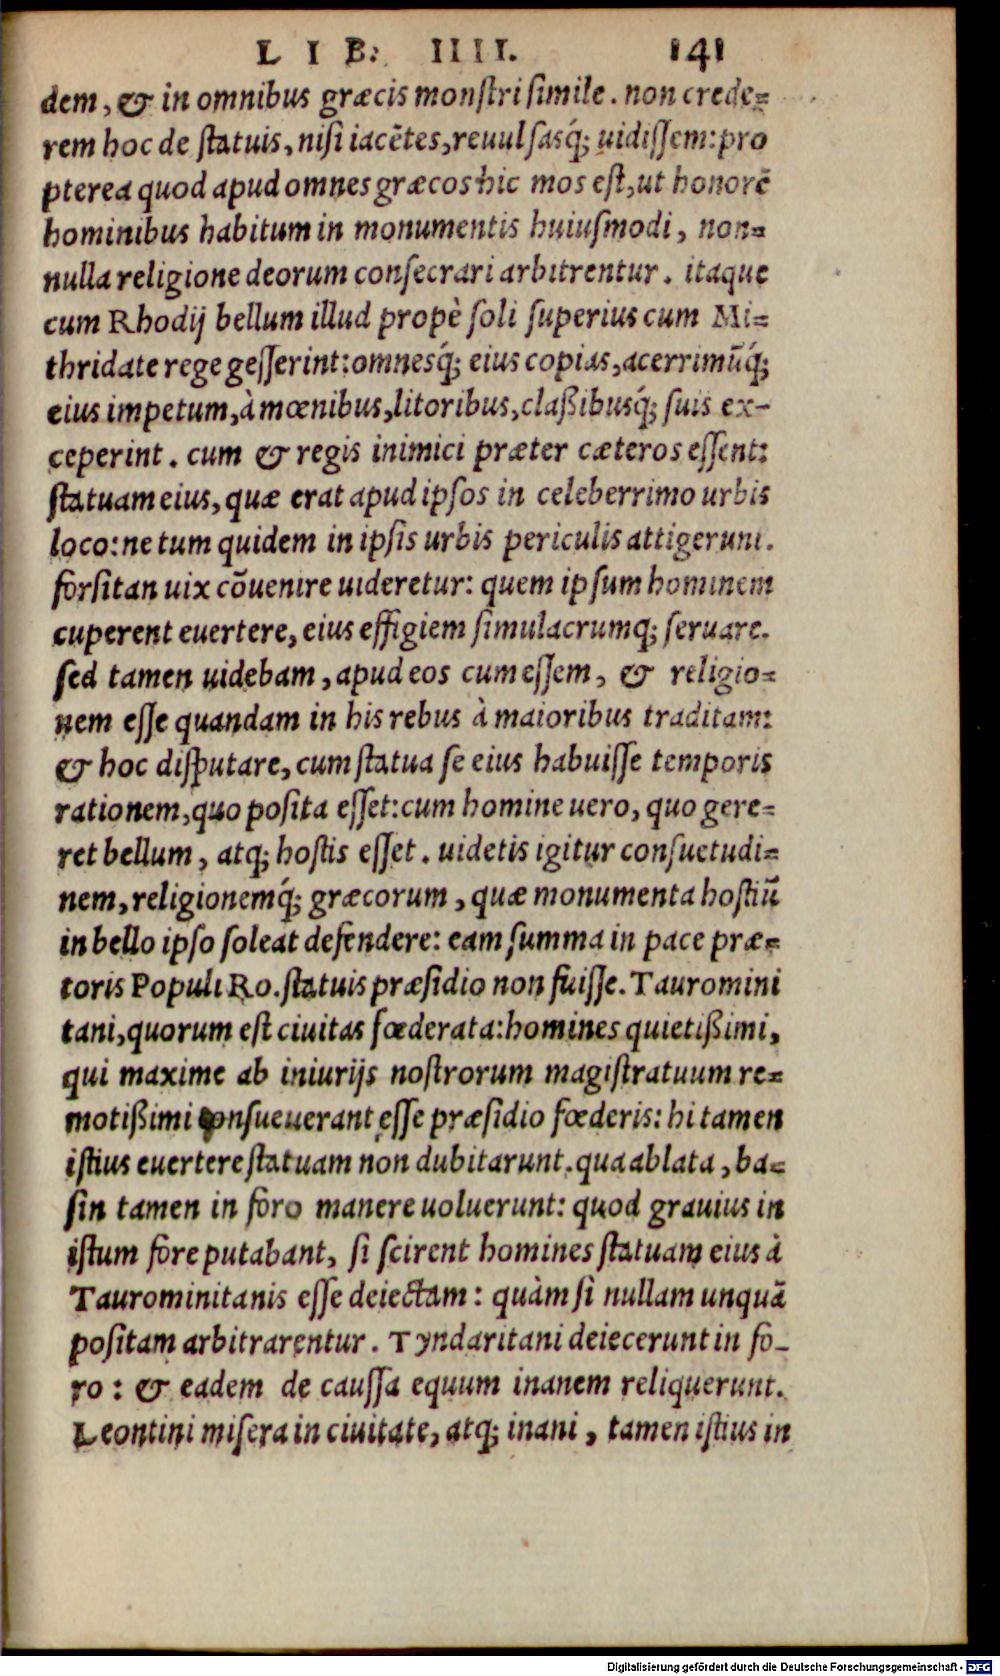 LIB. IIII. 141
dem, & in omnibus græcis monstri simile. non crede-
rem hoc de statuis, nisi iacẽtes, reuulsasq́; uidissem: pro
pterea quod apud omnes græcos hic mos est, ut honorẽ
hominibus habitum in monumentis huiusmodi, non-
nulla religione deorum consecrari arbitrentur. itaque
cum Rhodij bellum illud propè soli superius cum Mi-
thridate rege gesserint: omnesq́; eius copias, acerrimũq́;
eius impetum, à mœnibus, litoribus, claßibusq́; suis ex-
ceperint. cum & regis inimici præter cæteros essent:
statuam eius, quæ erat apud ipsos in celeberrimo urbis
loco: ne tum quidem in ipsis urbis periculis attigerunt.
forsitan uix cõuenire uideretur: quem ipsum hominem
cuperent euertere, eius effigiem simulacrumq; seruare.
sed tamen uidebam, apud eos cum essem, & religio-
nem esse quandam in his rebus à maioribus traditam:
& hoc disputare, cum statua se eius habuisse temporis
rationem, quo posita esset: cum homine uero, quo gere-
ret bellum, atq; hostis esset. uidetis igitur consuetudi-
nem, religionemq́; græcorum, quæ monumenta hostiũ
in bello ipso soleat defendere: eam summa in pace præ-
toris Populi Ro. statuis præsidio non fuisse. Tauromini
tani, quorum est ciuitas fœderata: homines quietißimi,
qui maxime ab iniurijs nostrorum magistratuum re-
motißimi consueuerant esse præsidio fœderis: hi tamen
istius euertere statuam non dubitarunt. qua ablata, ba-
sin tamen in foro manere uoluerunt: quod grauius in
istum fore putabant, si scirent homines statuam eius à
Taurominitanis esse deiectam: quàm si nullam unquã
positam arbitrarentur. Tyndaritani deiecerunt in fo-
ro: & eadem de caussa equum inanem reliquerunt.
Leontini misera in ciuitate, atq; inani, tamen istius in
Digitalisierung gefördert durch die Deutsche Forschungsgemeinschaft - DFG